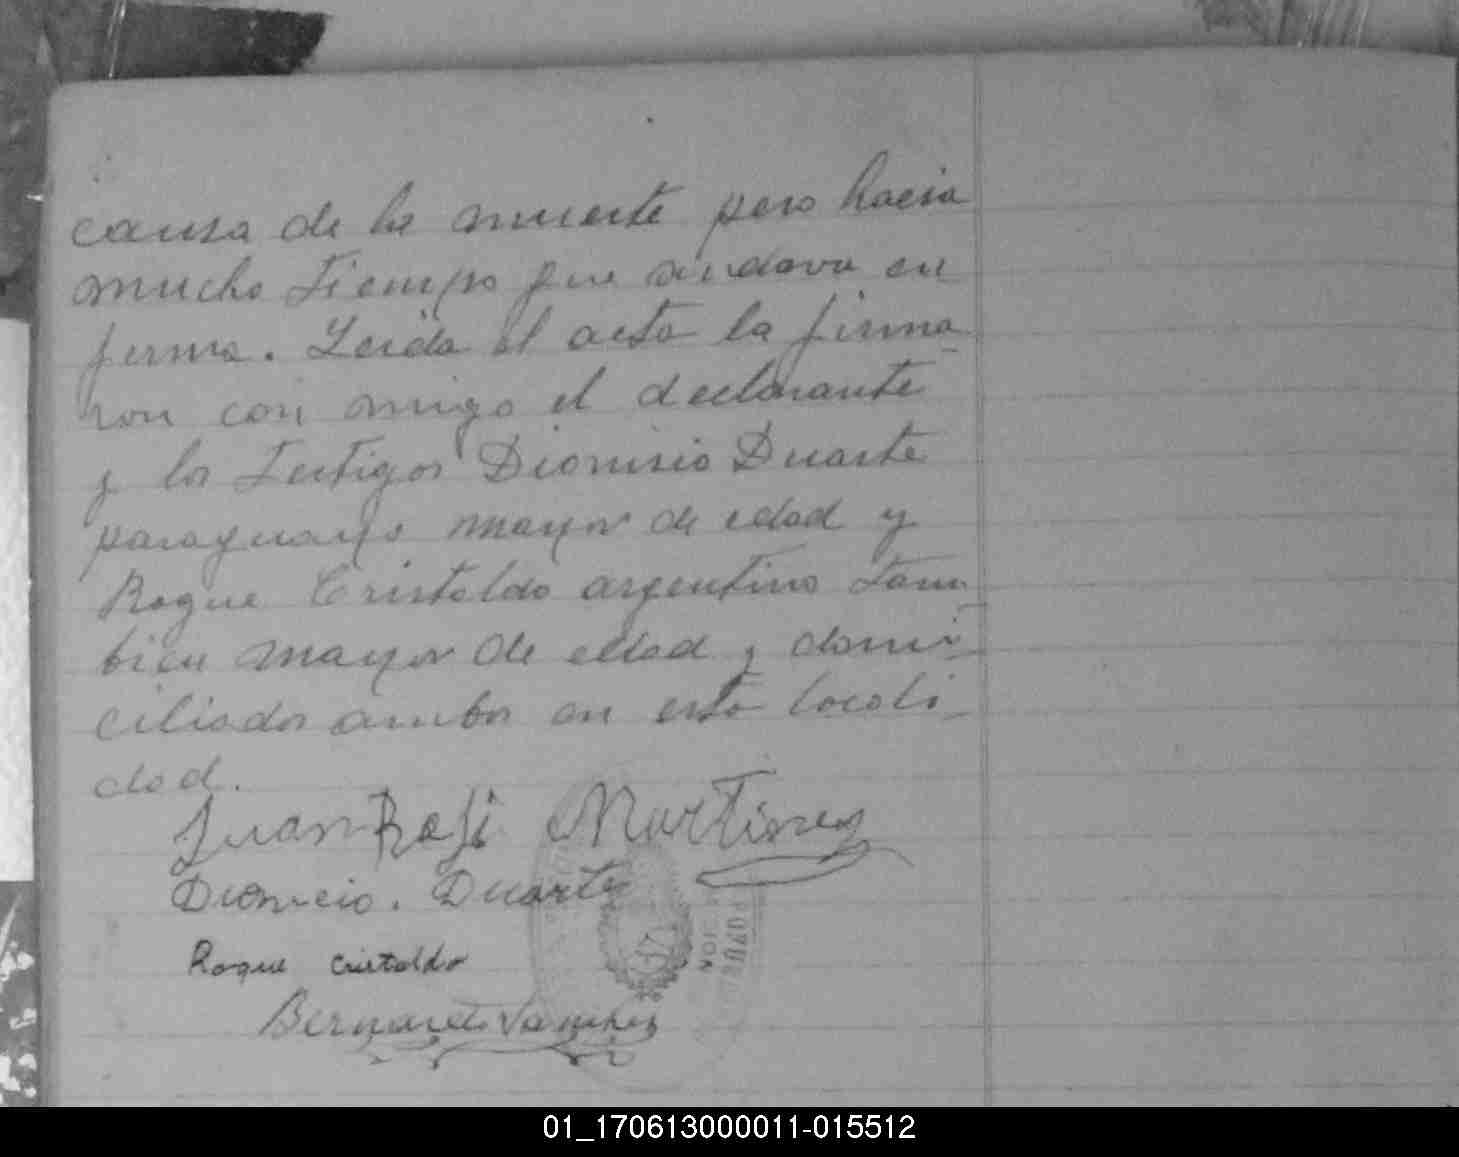 causa de la muerte pero hacia
mucho tiempo que andava en
ferma. Leida el acta la firma
ron con migo el declarante
y los Testigos Dionisio Duarte
paraguayo mayor de edad y
Roque Cristaldo argentino tam
bien mayor de edad y domi-
ciliados ambos en esta locali-
dad.
Juan Martinez
Dionicio. Duarte
Roque Cristaldo
Bernardo Sanchez
01_170613000011-015512